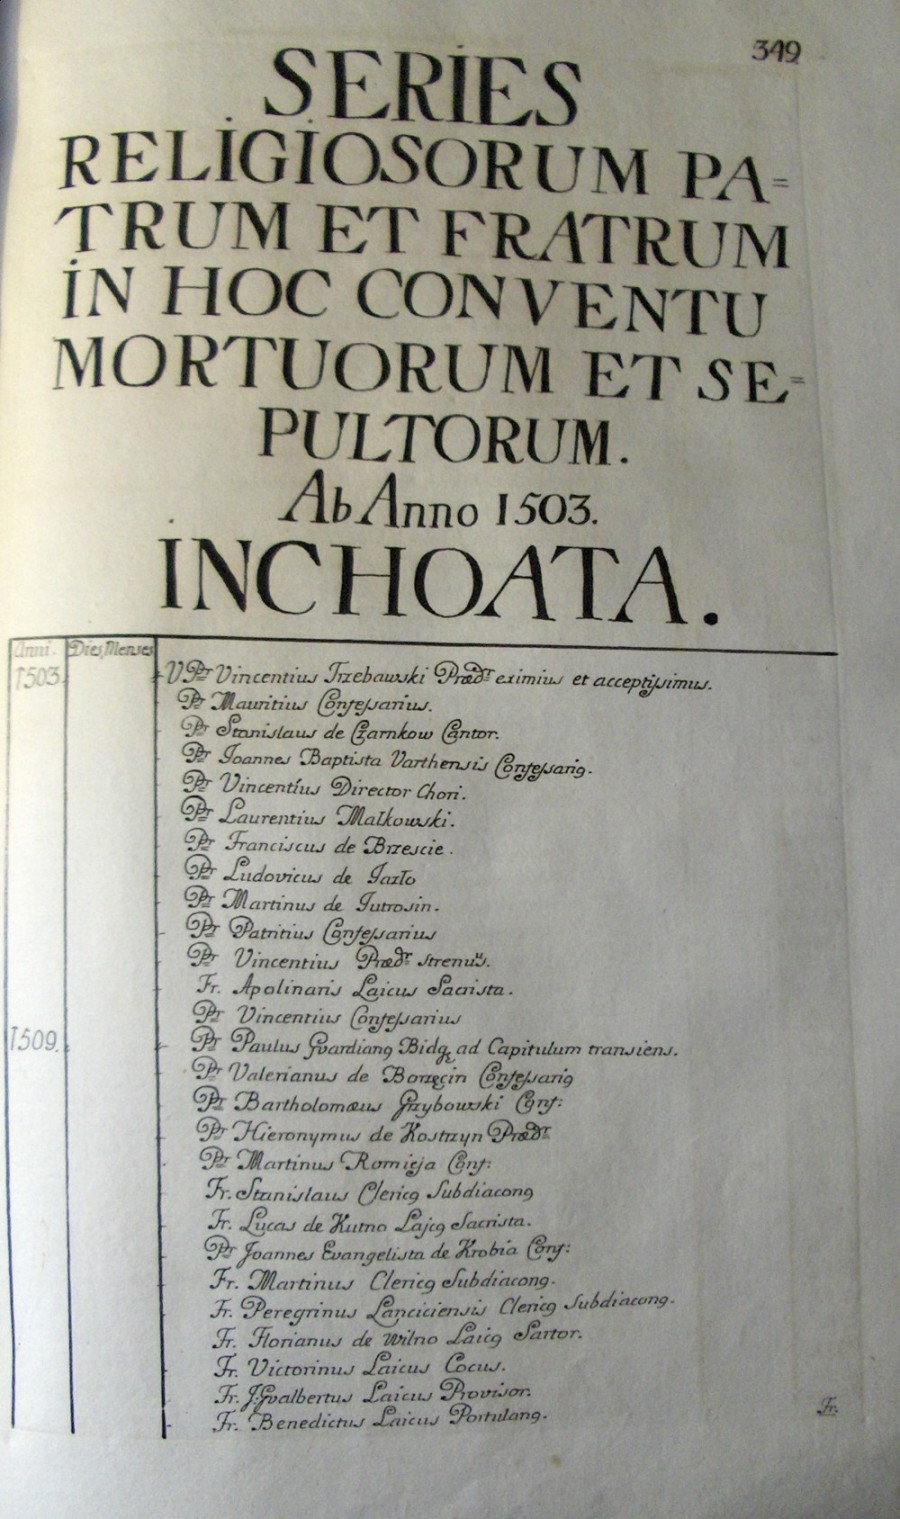 349
SERIES
RELIGIOSORUM PA=
TRUM ET FRATRUM
IN HOC CONVENTU
MORTUORUM ET SE=
PULTORUM.
Ab Anno 1503.
INCHOATA.
Anni. Dies, Menses
1503. V. Pr Vincentius Trzebawski Prædr eximius et acceptissimus.
Pr Mauritius Confessarius.
Pr Stanislaus de Czarnkow Cantor.
Pr Joannes Baptista Varthensis Confessarig.
Pr Vincentius Director Chori.
Pr Laurentius Małkowski.
Pr Franciscus de Brzescie.
Pr Ludovicus de Jazło
Pr Martinus de Jutrosin.
Pr Patritius Confessarius
Pr Vincentius Prædr strenuus.
Fr. Apolinaris Laicus Sacrista.
Pr Vincentius Confessarius
1509. Pr Paulus Gvardiang Bidg ad Capitulum transiens.
Pr Valerianus de Borzęcin Confessarig
Pr Bartholomæus Grzybowski Conf:
Pr Hieronymus de Kostrzyn Prædr
Pr Martinus Romieja Conf:
Fr. Stanislaus Clericg Subdiacong
Fr. Lucas de Kutno Lajcg Sacrista.
Pr Joannes Evangelista de Krobia Conf:
Fr. Martinus Clericg Subdiacong.
Fr. Peregrinus Lanciciensis Clericg Subdiacong.
Fr. Florianus de Wilno Laicg Sartor.
Fr. Victorinus Laicus Cocus.
Fr. J. Gvalbertus Laicus Provisor.
Fr. Benedictus Laicus Portulang.
Fr.